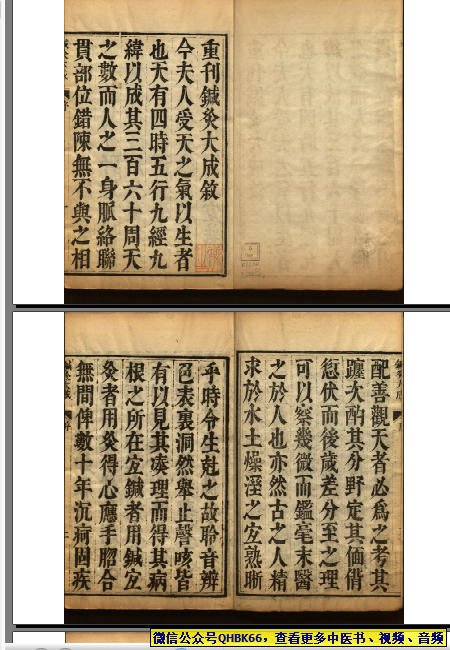 重刊鍼灸大成敘
今夫人受天之氣以生者
也天有四時五行九經九
緯以成其三百六十周天
之數而人之一身脈絡聯
貫部位錯陳無不與之相
配善觀天者必為之考其
躔次酌其分野定其
愆伏而後歲差分至之理
可以察幾微而鑑毫末醫
之於人也亦然古之人精
求於水土燥溼之宜熟晰
乎時令生尅之故聆音辨
色表裏洞然舉止謦咳皆
有以見其奏理而得其病
根之所在宜鍼者用鍼宜
灸者用灸得心應手脗合
無間俾數十年沉痾固疾
微信公众号QHBK66,查看更多中医书、视频、音频